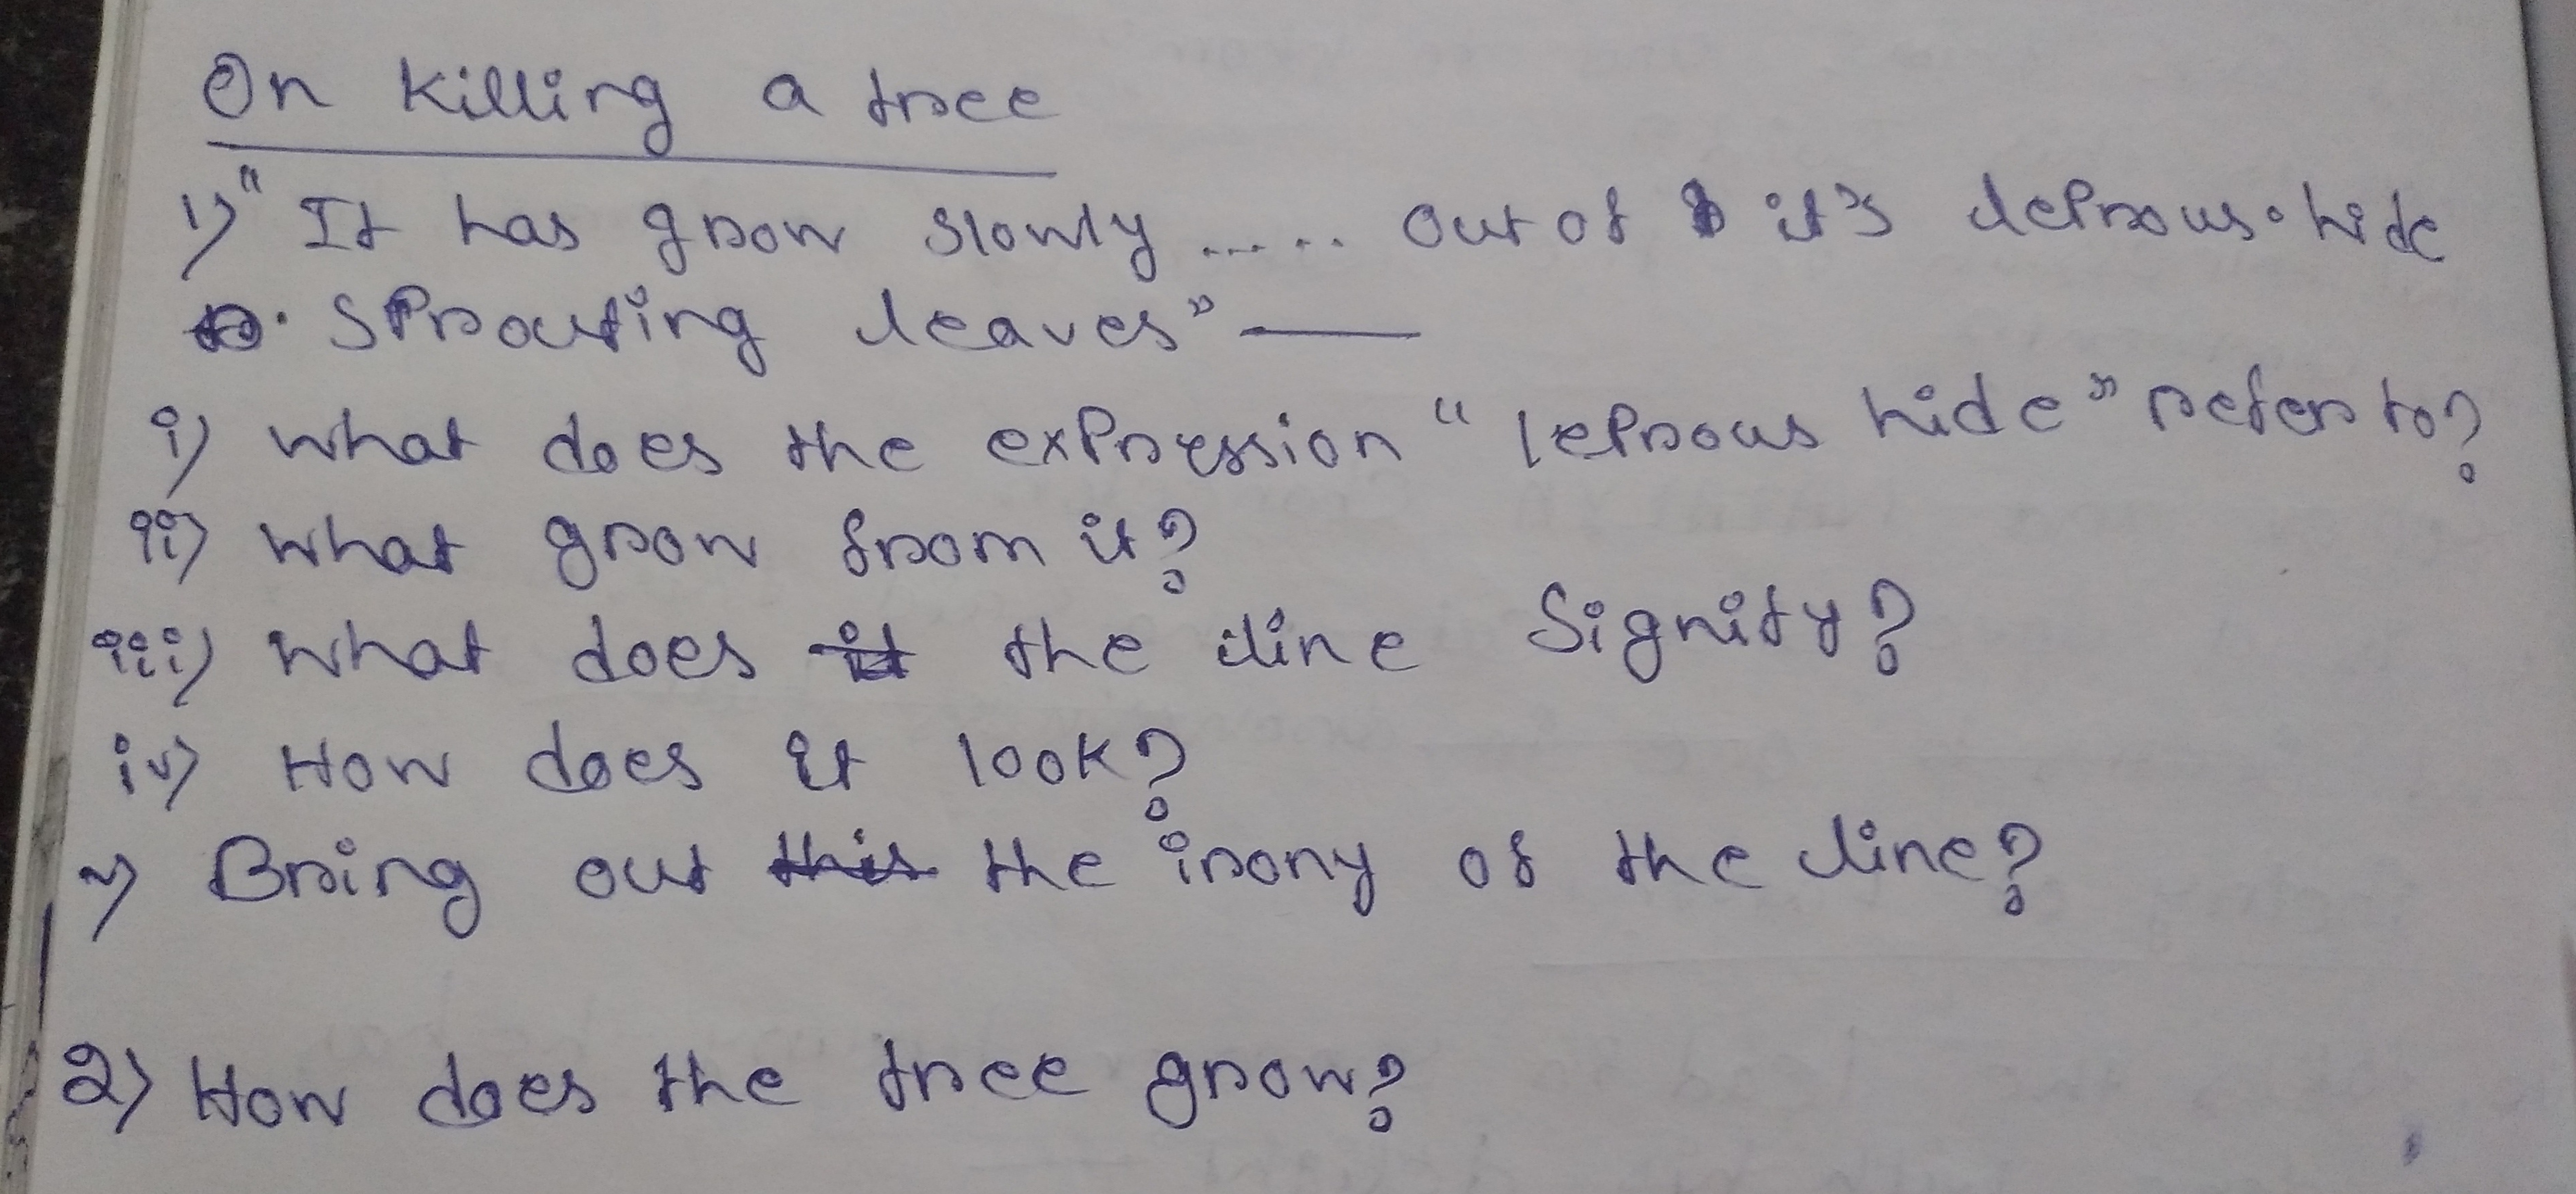 On Killing a tree
1) "It has grow slowly ..... out of it's leprous hide
sprouting leaves" —
i) What does the expression "leprous hide" refer to?
ii) What grow from it?
iii) What does the line signify?
iv) How does it look?
v) Bring out the irony of the line?
2) How does the tree grow?